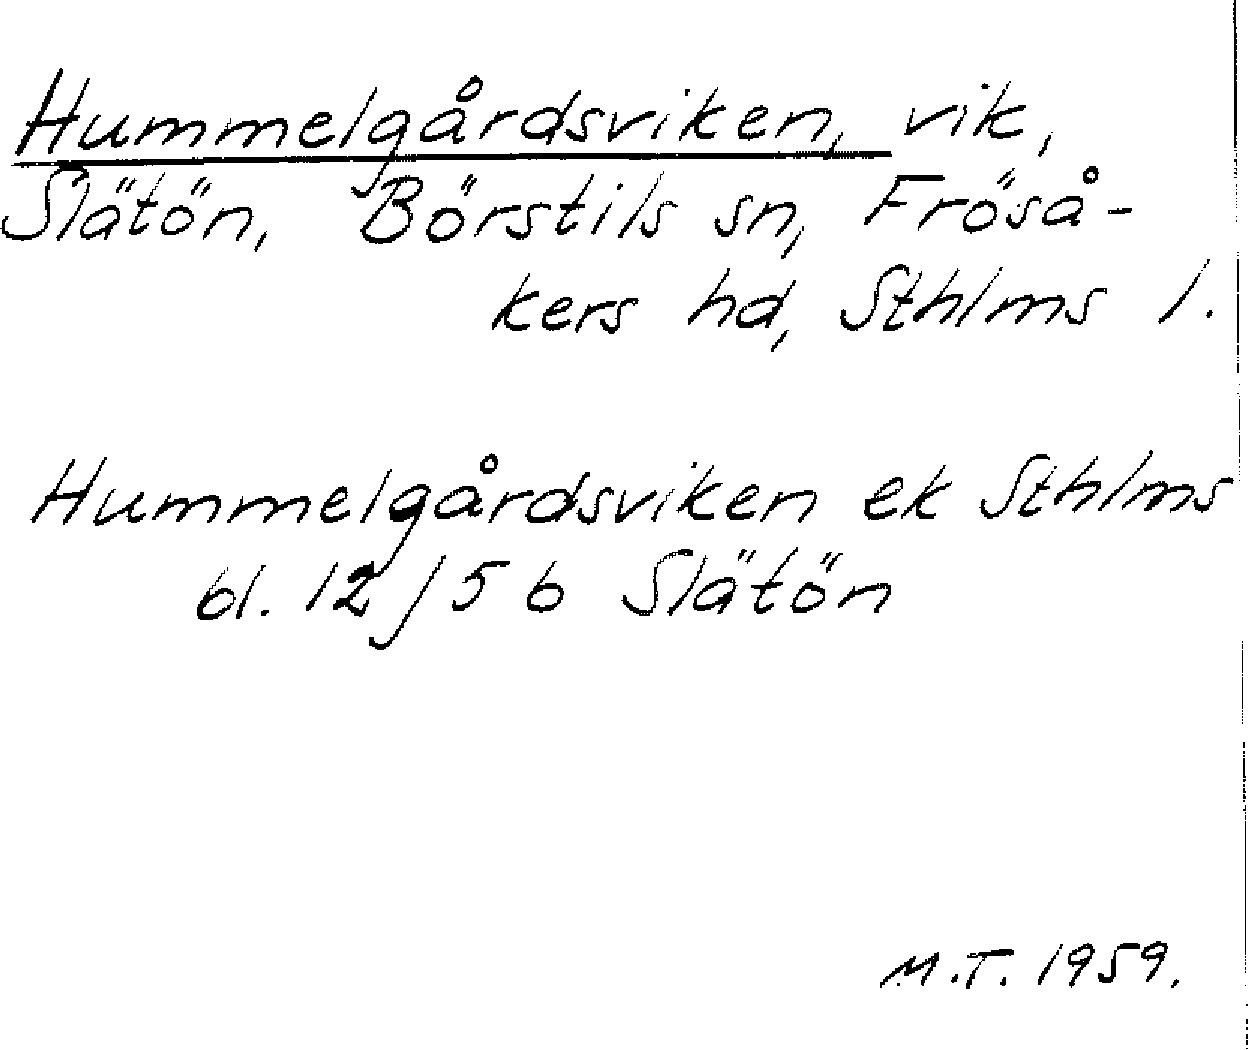 Hummelgårdsviken, vik,
Slätön, Börstils sn, Fröså-
kers hd, Sthlms l.
Hummelgårdsviken ek Sthlms
bl. 12 J 5 b Slätön
M.T. 1959.